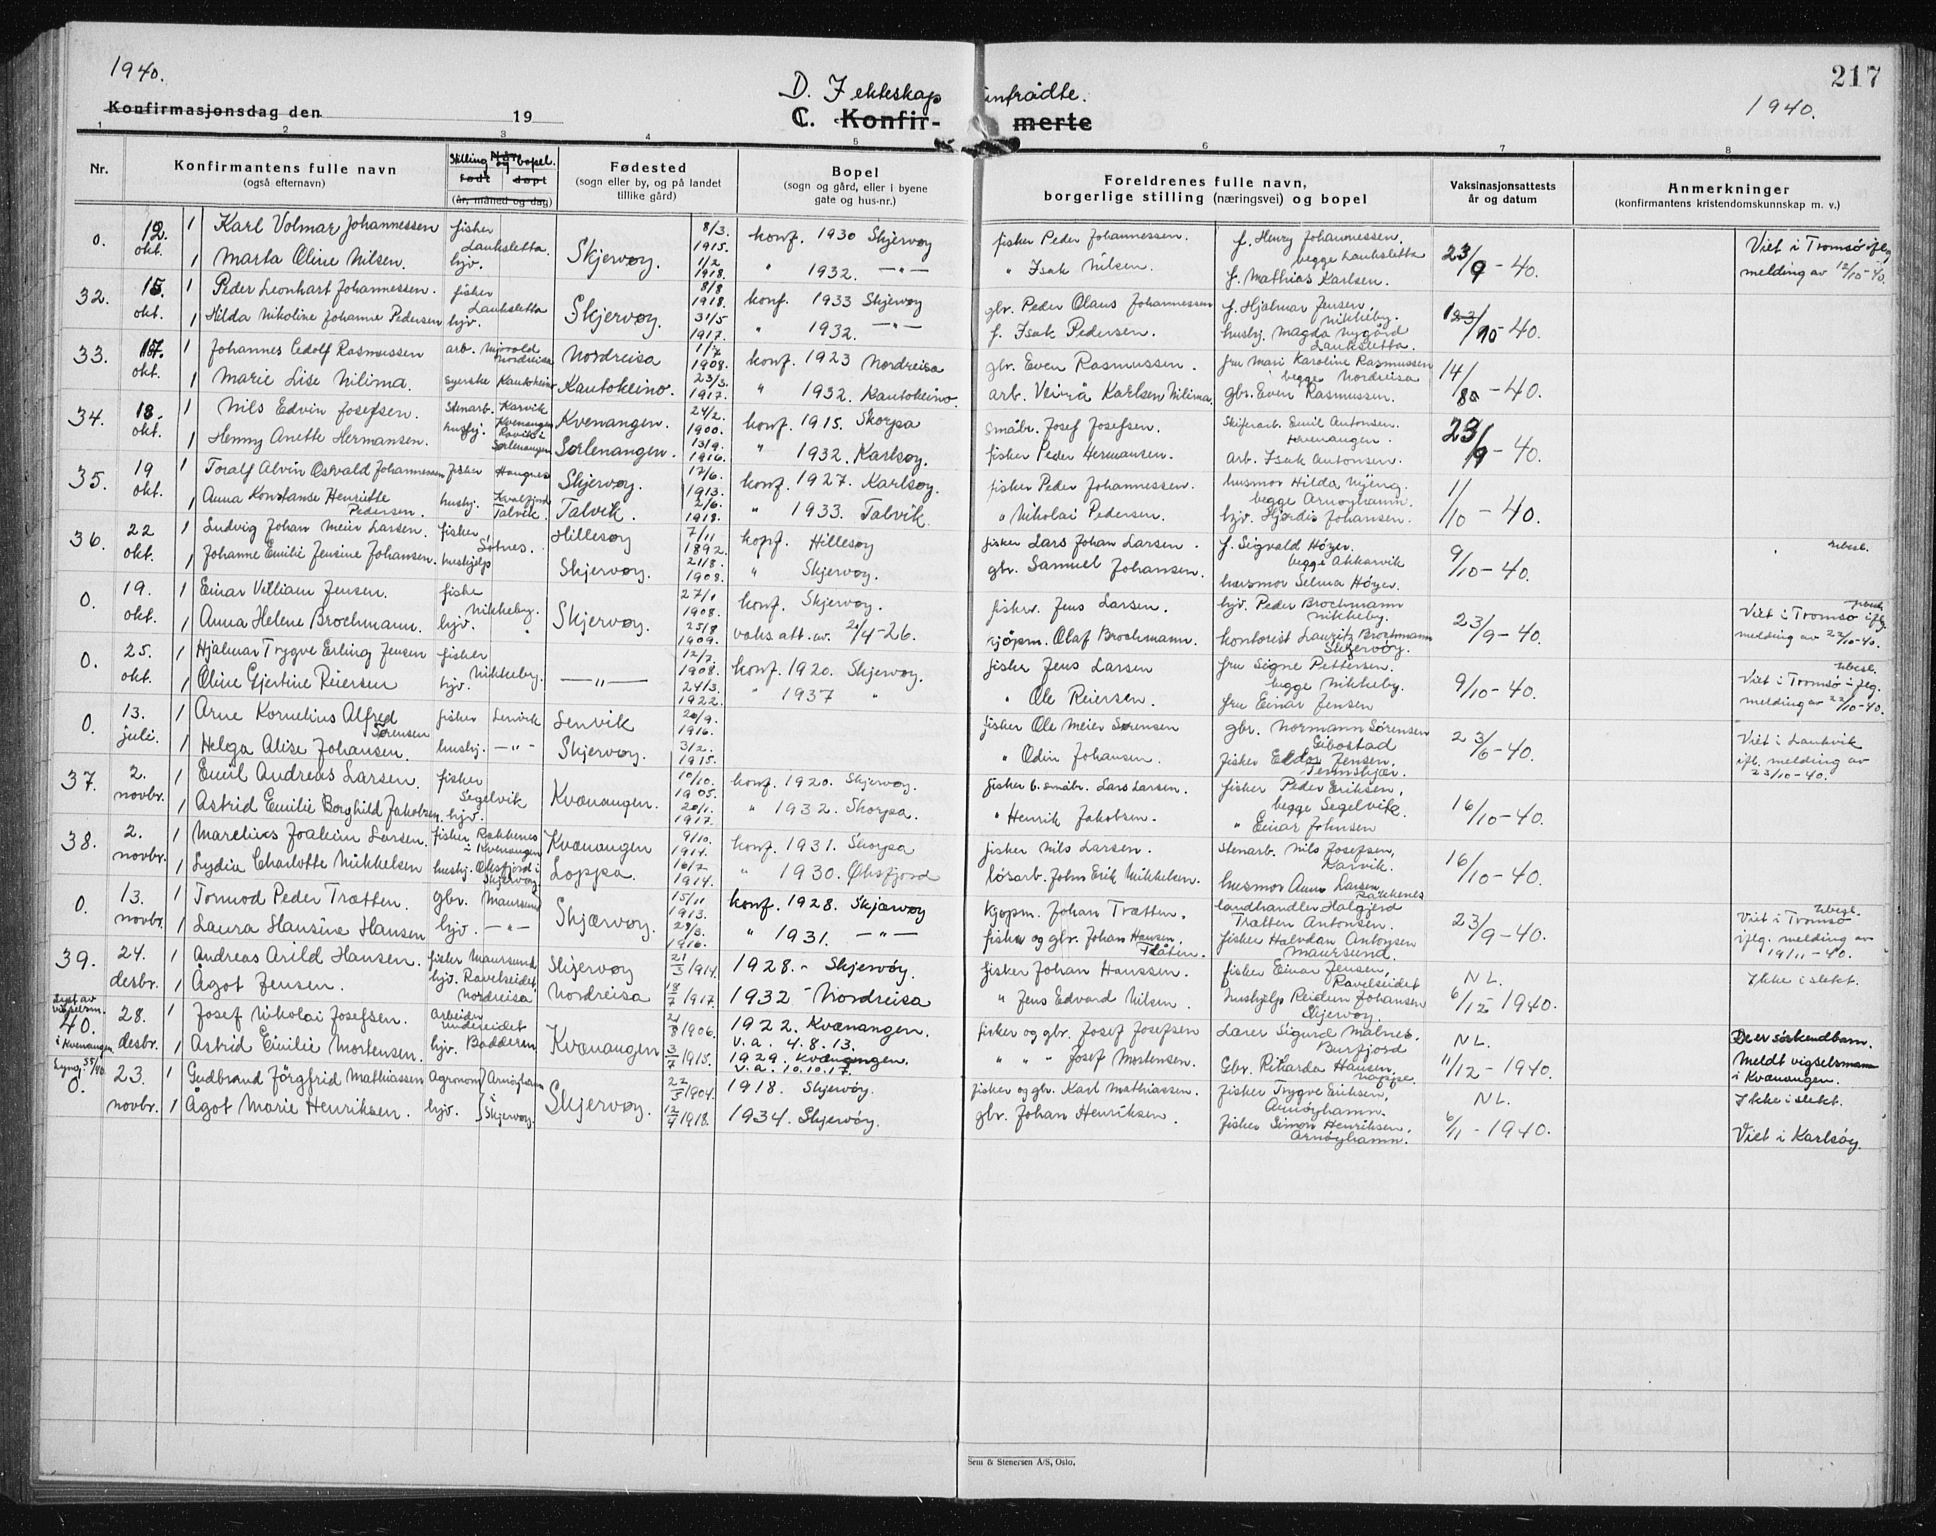 1940.
D. I ekteskap inntrådte.
217
1940.
Konfirmasjonsdag den 19
C. Konfirmerte
1 2 3 4 5 6 7 8
Nr.
Konfirmantens fulle navn (også efternavn)
Stilling og bopel.
Når født døpt (år, måned og dag)
Fødested (sogn eller by, og på landet tillike gård)
Bopel (sogn og gård, eller i byene gate og hus-nr.)
Foreldrenes fulle navn, borgerlige stilling (næringsvei) og bopel
Vaksinasjonsattests år og datum
Anmerkninger (konfirmantens kristendomskunnskap m. v.)
0. 12. okt. 1 Karl Volmar Johannessen fisher Lauksletta Skjervøy. 8/3 1915. konf. 1930 Skjervøy fisker Peder Johannessen. f. Henry Johannessen begge Lauksletta 23/9-40. Viet i Tromsø iflg
1 Marta Oline Nilsen. hjv. 1/2 1918. " 1932. —"— " Isak Nilsen. f. Mathias Karlsen. melding av 12/10-40.
32. 15. okt. 1 Peder Leonhart Johannessen. fisker Lauksletta Skjervøy. 8/8 1918. konf. 1933 Skjervøy gbr. Peder Olaus Johannessen f. Hjalmar Jensen, Nikkeby. /10-40.
1 Hilda Nikoline Johanne Pedersen hjv. 31/5 1917. " 1932. —"— f. Isak Pedersen. hushj. Magda Nygård Lauksletta.
33. 17. okt. 1 Johannes Cedolf Rasmussen arb. Nordreisa Nordreisa 1/7 1908. konf. 1923 Nordreisa gbr. Even Rasmussen. fru Mari Karoline Rasmussen begge Nordreisa 14/ -40.
1 Marie Lise Nilima. syerske Kautokeino Kautokeino. 23/3. 1917. " 1932. Kautokeino. arb. Karlsen Nilima. gbr. Even Rasmussen.
34. 18. okt. 1 Nils Edvin Josefsen. Stenarb. Karvik Kvenangen Kvenangen. 24/2. 1900. konf. 1915. Skorpa småbr. Josef Josefsen. Skiferarb. Emil Antonsen. Kvenangen. 23/9-40.
1 Henny Anette Hermansen. hushj. Sørlenangen Sørlenangen. 13/9. 1916. " 1932. Karlsøy. fisker Peder Hermansen. arb. Isak Antonsen.
35. 19 okt. 1 Toralf Alvin Osvald Johannessen fisker Haugnes Skjervøy. 17/6. 1913. konf. 1927. Karlsøy. fisker Peder Johannessen. husmor Hilda Nyeng. begge Arnøyhamn. 1/10-40.
1 Anna Konstanse Henriette Pedersen. hushj. Kvalfjord Talvik. Talvik. 2/6. 1918. " 1933. Talvik. " Nikolai Pedersen. hjv. Hjørdis Johansen.
36. 22 okt. 1 Ludvig Johan Meier Larsen. fisker Sotnes. Hillesøy 7/11 1892. konf. Hillesøy fisker Lars Johan Larsen. f. Sigvald Høyer. begge Akkarvik 9/10-40. ubesl.
1 Johanne Emilie Jensine Johansen. hushjelp Skjervøy. 21/8. 1908. " Skjervøy. gbr. Samuel Johansen. husmor Selma Høyer.
0. 19. okt. 1 Einar Villiam Jensen. fisker Nikkeby. Skjervøy. 27/1 1908. konf. Skjervøy. fisker. Jens Larsen. hjv. Peder Brochmann Nikkeby. 23/9-40. ubesl. Viet i Tromsø iflg.
1 Anna Helene Brochmann. hjv. 25/8 1909. vaks. att. av. 21/4-26. kjøpm. Olaf Brochmann. kontorist Lauritz Brochmann Skjervøy. melding av 22/10-40.
0. 25. okt. 1 Hjalmar Trygve Erling Jensen fisker Nikkeby. —"— 12/7. 1908. konf. 1920. Skjervøy. fisker Jens Larsen fru Signe Pettersen. begge Nikkeby. 9/10-40. ubesl. Viet i Tromsø iflg.
1 Oline Gjertine Reiersen hjv. 24/3. 1922. " 1937 " " Ole Reiersen. fru Einar Jensen melding av 22/10-40.
0. 13. juli. 1 Arne Kornelius Alfred Sørensen fisker Lenvik Lenvik 20/9. 1916. fisker Ole Meier Sørensen gbr. Normann Sørensen Gibostad 23/6-40. Viet i Lenkvik
1 Helga Alise Johansen. hushj. —"— Skjervøy. 3/2. 1915. " Odin Johansen. fisker Eldor Jensen, Tennskjær. iflg. melding av 23/10-40.
37. 2. novbr. 1 Emil Andreas Larsen. fisker Segelvik Kvænangen. 10/10. 1905. konf. 1920. Skjervøy. fisker & småbr. Lars Larsen. fisker Peder Eriksen, begge Segelvik. 16/10-40.
1 Astrid Emilie Borghild Jakobsen hjv. 20/1. 1917. " 1932. Skorpa. " Henrik Jakobsen. " Einar Johnsen
38. 2. novbr. 1 Marelius Joakim Larsen. fisker Rakkenes i Kvenangen Kvænangen 9/10. 1914. konf. 1931. Skorpa fisker Nils Larsen. Stenarb. Nils Josefsen, Karvik. 16/10-40.
1 Lydia Charlotte Mikkelsen hushj. Oksfjord i Skjervøy Loppa. 16/7 1914. " 1930. Øksfjord løsarb. Johs Erik Mikkelsen. husmor Anna Larsen Rakkenes
0. 13. novbr. 1 Tormod Peder Trætten. gbr. Maursund Skjærvøy. 15/11 1913. konf. 1928. Skjærvøy kjøpm. Johan Trætten. landhandler Halgjerd Trætten Antonsen. 23/9-40. ubesl. Viet i Tromsø
1 Laura Hansine Hansen hjv. —"— 29/3. 1916. " 1931. —"— fisker og gbr. Johan Hansen. Flåten. fisker Halvdan Antonsen Maursund. iflg. melding av 19/11-40.
39. 24. desbr. 1 Andreas Arild Hansen. fisker Maursund Skjervøy 21/3 1914. 1928. - Skjervøy. fisker Johan Hanssen. fisker Einar Jensen, Ravelseidet NL. Ikke i slekt.
1 Ågot Jensen. hjv. Ravelseidet Nordreisa Nordreisa 18/7 1917. 1932 - Nordreisa " Jens Edvard Nilsen. hushjelp Reidun Johansen Skjervøy. 6/12-1940.
Lyst av vigselsm. i Kvenangen 40. 28. desbr. 1 Josef Nikolai Josefsen. Arbeider undereidet Kvænangen 21/8 1906. 1922. Kvænangen. v.a. 4.8.13. fisker og gbr. Josef Josefsen Lærer Sigurd Malnes, Burfjord NL. De er søskendbarn.
1 Astrid Emilie Mortensen. hjv. Badderen 3/7 1915. 1929. Kvænangen. v.a. 10.10.17. " " " Josef Mortensen. Gbr. Rikarda Hansen, 11/12-1940. Meldt vigselsmann i Kvænangen.
Lyng. 55/40 0. 23. novbr. 1 Gudbrand Jørgfrid Mathiassen Agronom Arnøyhamn i Skjervøy Skjervøy. 22/5 1904. 1918. Skjervøy. fisker og gbr. Karl Mathiassen. fisker Trygve Eriksen, Arnøyhamn. NL. Ikke i slekt.
1 Ågot Marie Henriksen. hjv. 12/9 1918. 1934. Skjervøy. gbr. Johan Henriksen. fisker Simon Henriksen. Arnøyhamn. 6/11-1940. Viet i Karlsøy.
Sem & Stenersen A/S, Oslo.